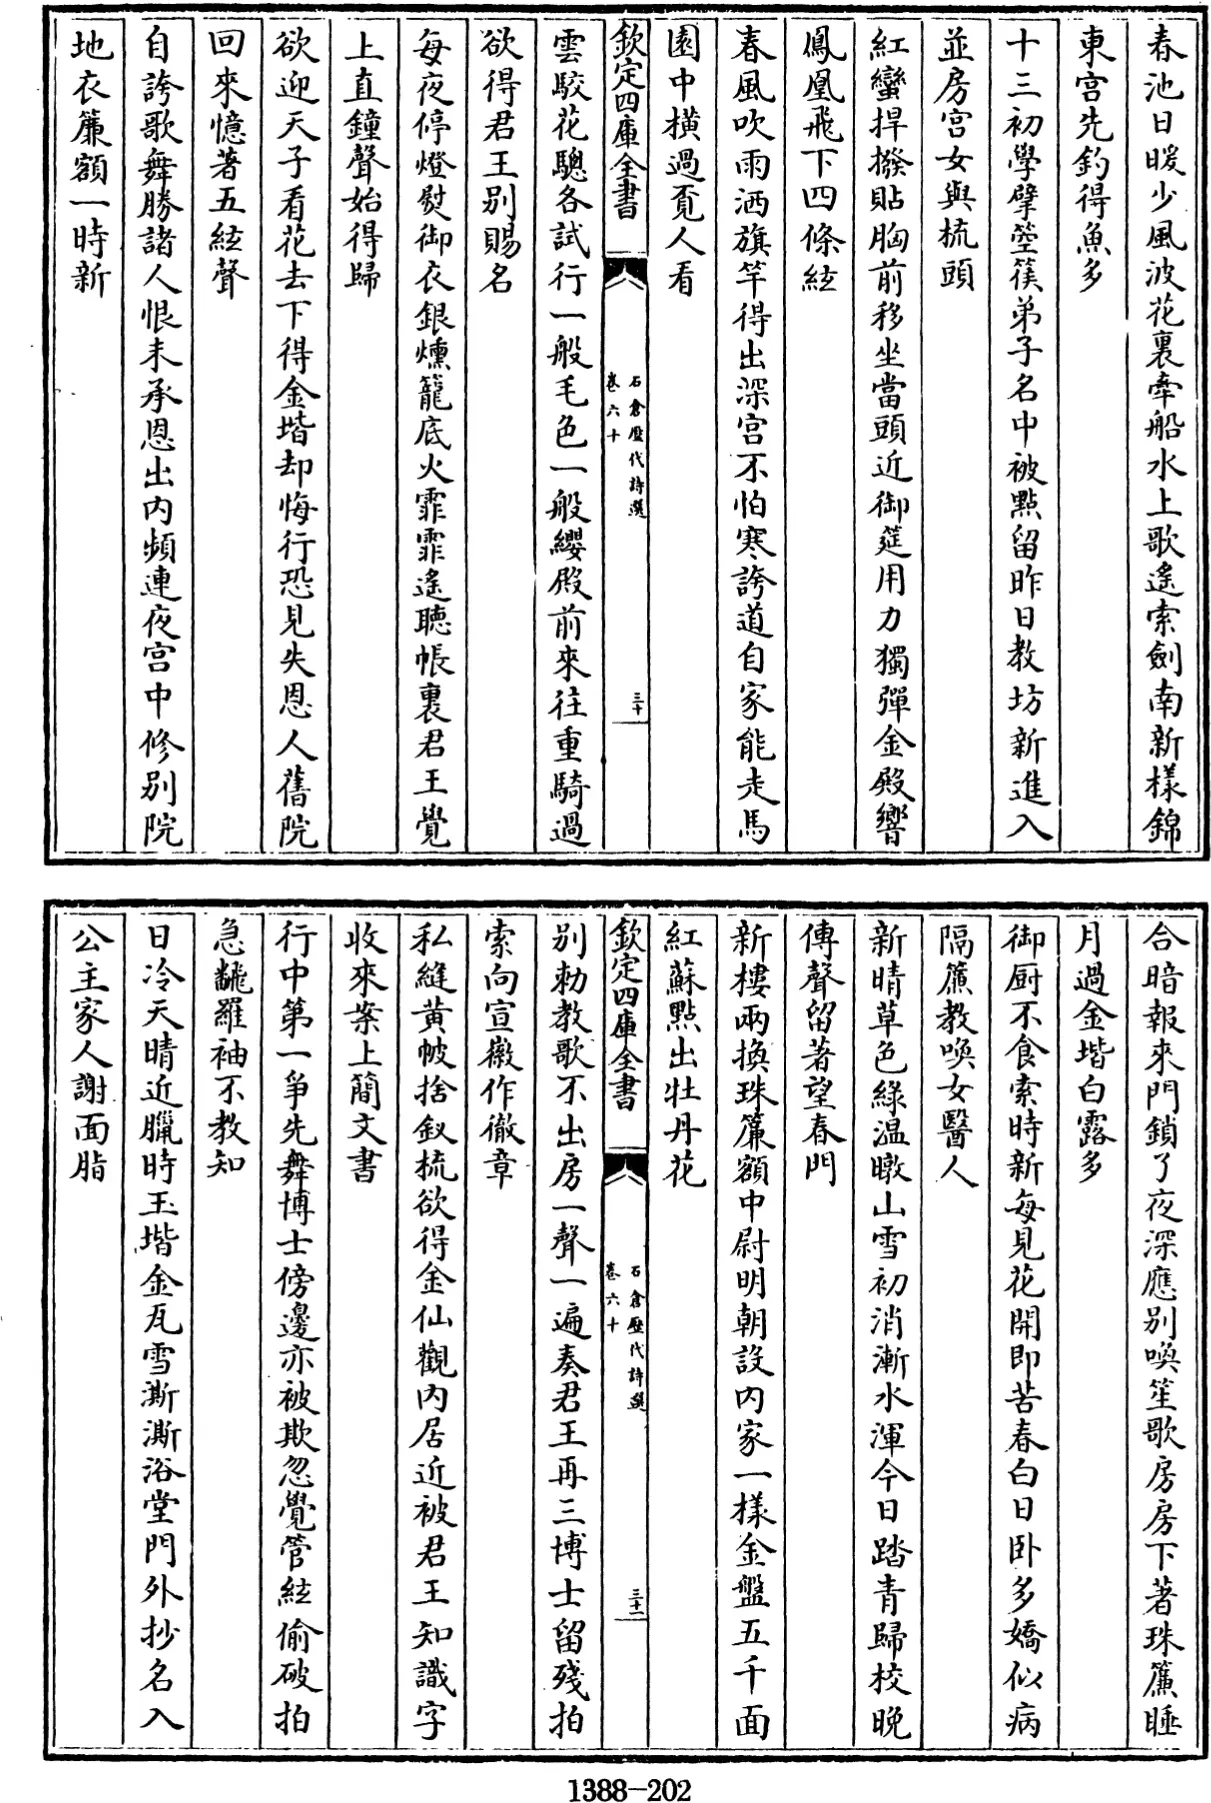 春池日暖少風波花裏牽船水上歌遙索劍南新樣錦
東宮先釣得魚多
十三初學擘箜篌弟子名中被點留昨日教坊新進入
並房宮女與梳頭
紅蠻捍撥貼胸前移坐當頭近御筵用力獨彈金殿響
鳳凰飛下四條絃
春風吹雨洒旗竿得出深宮不怕寒誇道自家能走馬
園中橫過覓人看
欽定四庫全書
石倉歷代詩選
卷六十
三十
雲駮花驄各試行一般毛色一般纓殿前來往重騎過
欲得君王别賜名
每夜停燈熨御衣銀燻籠底火霏霏遙聽帳裏君王覺
上直鐘聲始得歸
欲迎天子看花去下得金堦却悔行恐見失恩人舊院
回來憶著五絃聲
自誇歌舞勝諸人恨未承恩出内頻連夜宮中修别院
地衣簾額一時新
合暗報來門鎖了夜深應别喚笙歌房房下著珠簾睡
月過金堦白露多
御厨不食索時新每見花開即苦春白日卧多嬌似病
隔簾教喚女醫人
新晴草色綠温暾山雪初消漸水渾今日踏青歸校晚
傳聲留著望春門
新樓兩換珠簾額中尉明朝設内家一樣金盤五千面
紅蘇點出牡丹花
欽定四庫全書
石倉歷代詩選
卷六十
三十一
别勅教歌不出房一聲一遍奏君王再三博士留殘拍
索向宣徽作徹章
私縫黄帔捨釵梳欲得金仙觀内居近被君王知識字
收來案上簡文書
行中第一爭先舞博士傍邊亦被欺忽覺管絃偷破拍
急翻羅袖不教知
日冷天晴近臘時玉堦金瓦雪澌澌浴堂門外抄名入
公主家人謝面脂
1388-202